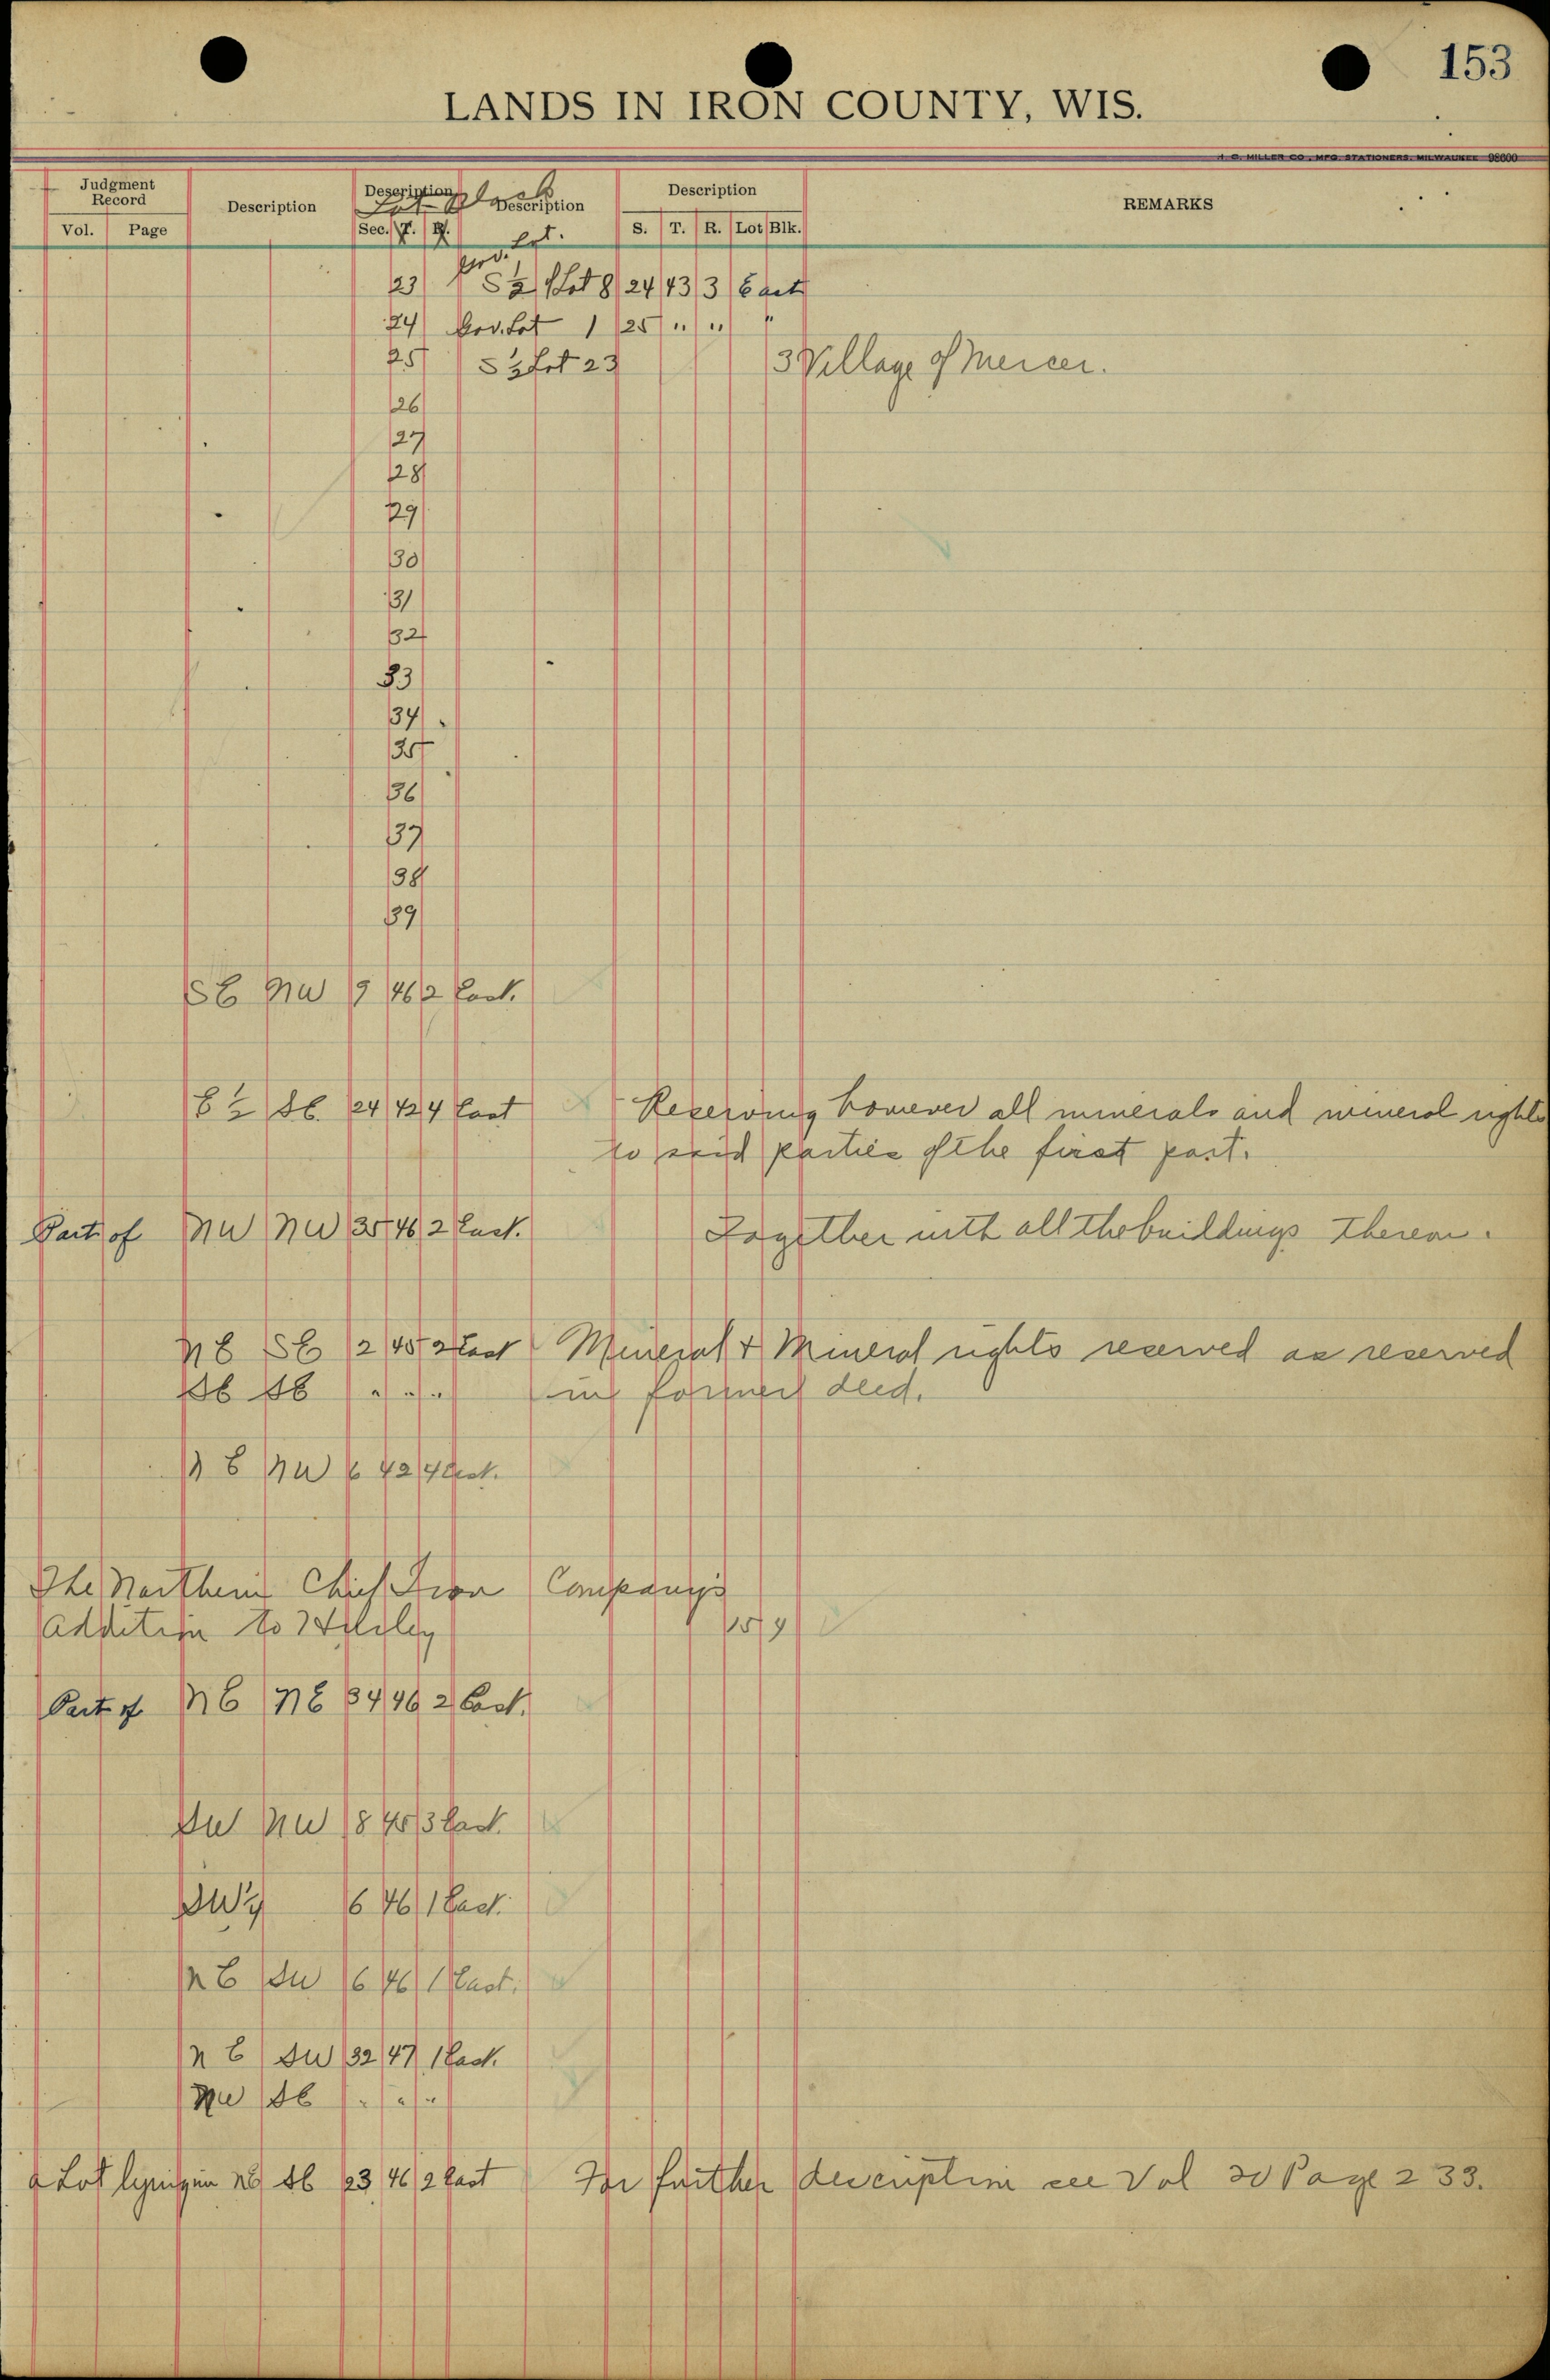 153
LANDS IN IRON COUNTY, WIS.
H. C. MILLER CO., MFG. STATIONERS, MILWAUKEE 98600
Judgment Record Description Description Description Description REMARKS
Vol. Page Sec. T. R. Lot. S. T. R. Lot Blk.
Gov.
23 S½ Lot 8 24 43 3 East
24 Gov. Lot 1 25 " " "
25 S½ Lot 23 3 Village of Mercer.
26
27
28
29
30
31
32
33
34
35
36
37
38
39
SE NW 9 46 2 East.
E½ SE. 24 42 4 East Reserving however all minerals and mineral rights
to said parties of the first part.
Part of NW NW 35 46 2 East. Together with all the buildings thereon.
NE SE 2 45 2 East Mineral & Mineral rights reserved as reserved
SE SE " " " in former deed.
NE NW 6 42 4 East.
The Northern Chief Iron Company's
addition to Hurley 15 9
Part of NE NE 34 46 2 East.
SW NW 18 45 3 East.
SW¼ 16 46 1 East.
NE SW 16 46 1 East.
NE SW 32 47 1 East.
NW SE " " "
a Lot lying in NE SE 23 46 2 East For further description see Vol 20 Page 233.